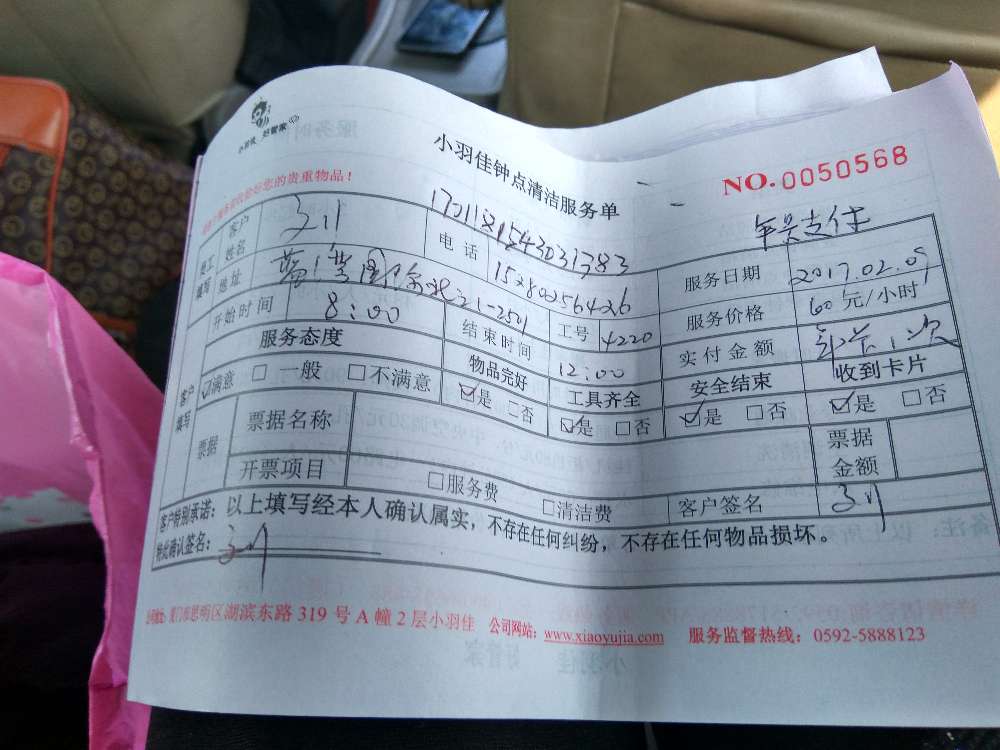 小羽佳 好管家
小羽佳钟点清洁服务单
NO.0050568
您的贵重物品!
客户姓名
电话 15280256426
服务日期 2017.02.09
地址
服务价格 60元/小时
开始时间 8:00
结束时间 12:00
工号 4220
实付金额
服务态度
物品完好
工具齐全
安全结束
收到卡片
客户填写
☑满意 □一般 □不满意
☑是 □否
☑是 □否
☑是 □否
☑是 □否
票据
票据名称
票据金额
开票项目
□服务费 □清洁费
客户签名
客户特别承诺:以上填写经本人确认属实,不存在任何纠纷,不存在任何物品损坏。
特此确认签名:
厦门市思明区湖滨东路 319 号 A 幢 2 层小羽佳 公司网站:www.xiaoyujia.com 服务监督热线:0592-5888123